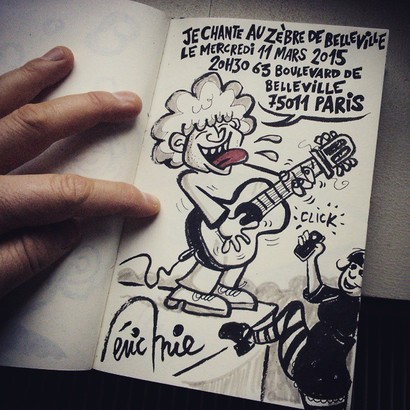 JE CHANTE AU ZÈBRE DE BELLEVILLE
LE MERCREDI 11 MARS 2015
20H30 63 BOULEVARD DE
BELLEVILLE
75011 PARIS
CLICK
éric mie